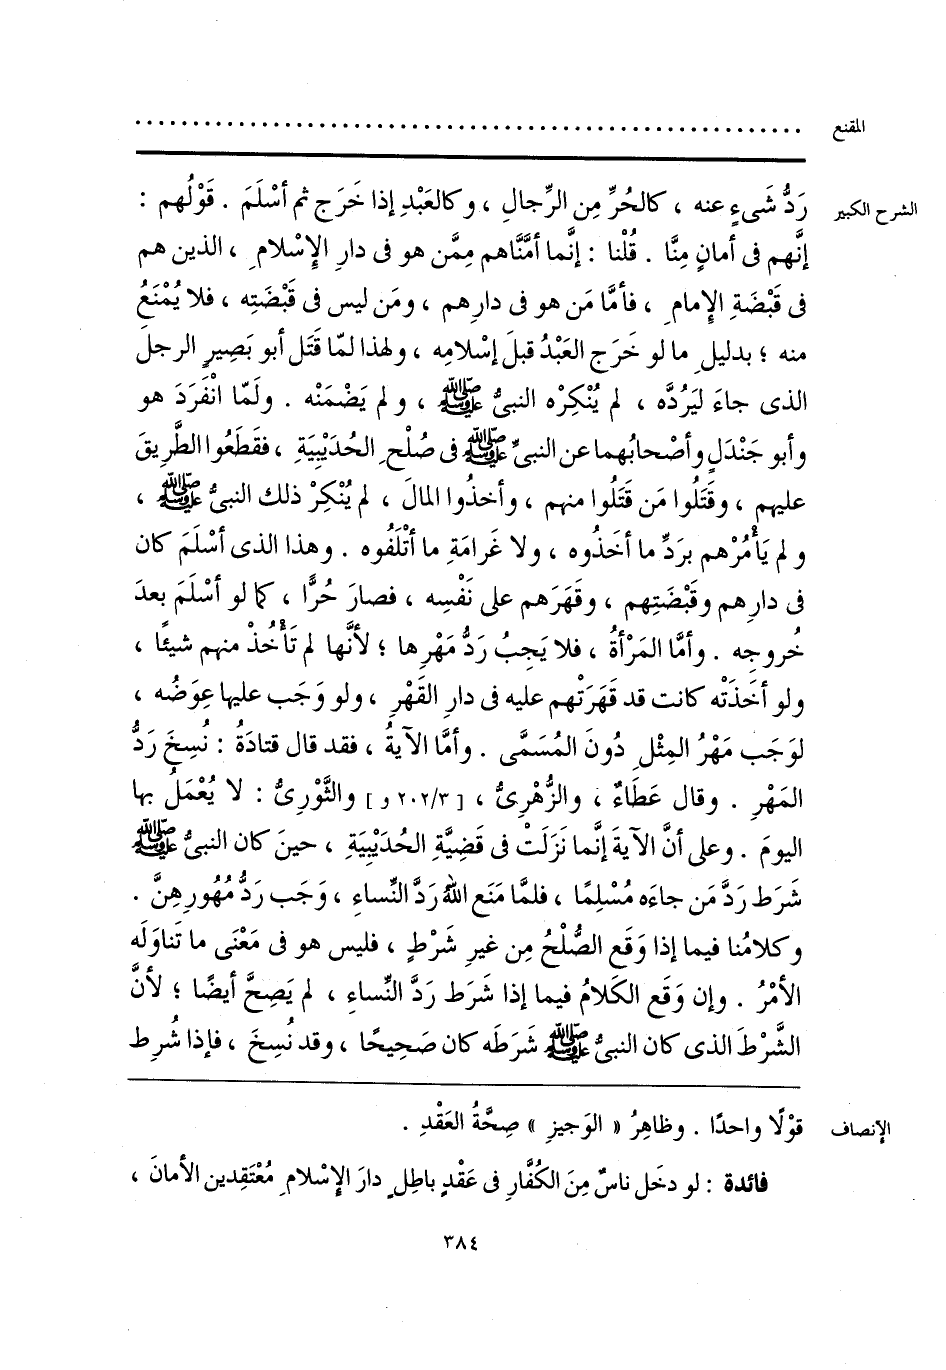 المقنع ........................................................
الشرح الكبير رَدُّ شَىءٍ عنه ، كالحُرِّ مِن الرِّجالِ ، وكالعَبْدِ إذا خَرَج ثم أسْلَمَ . قَوْلُهم :
إنَّهم فى أمانٍ مِنَّا . قُلْنا : إنَّما أمَّنَّاهم مِمَّن هو فى دارِ الإِسْلامِ ، الذين هم
فى قَبْضَةِ الإِمامِ ، فأمَّا مَن هو فى دارِهم ، ومَن ليس فى قَبْضَتِه ، فلا يُمْنَعُ
منه ؛ بدليلِ ما لو خَرَج العَبْدُ قبلَ إسْلامِه ، ولهذا لمّا قَتَل أبو بَصِيرٍ الرجلَ
الذى جاءَ ليَرُدَّه ، لم يُنْكِرْه النبىُّ ﷺ ، ولم يَضْمَنْه . ولَمّا انْفَرَدَ هو
وأبو جَنْدَلٍ وأصْحابُهما عن النبىِّ ﷺ فى صُلْحِ الحُدَيْبِيَةِ ، فقَطَعُوا الطَّرِيقَ
عليهم ، وقَتَلُوا مَن قَتَلُوا منهم ، وأخذُوا المالَ ، لم يُنْكِرْ ذلك النبىُّ ﷺ ،
ولم يَأْمُرْهم برَدِّ ما أخَذُوه ، ولا غَرامَةِ ما أتْلَفُوه . وهذا الذى أسْلَمَ كان
فى دارِهم وقَبْضَتِهم ، وقَهَرَهم على نَفْسِه ، فصارَ حُرًّا ، كما لو أسْلَمَ بعدَ
خُروجِه . وأمَّا المَرْأةُ ، فلا يَجِبُ رَدُّ مَهْرِها ؛ لأنَّها لم تَأْخُذْ منهم شيئًا ،
ولو أخَذَتْه كانت قد قَهَرَتْهم عليه فى دارِ القَهْرِ ، ولو وَجَب عليها عِوَضُه ،
لوَجَب مَهْرُ المِثْلِ دُونَ المُسَمَّى . وأمَّا الآيةُ ، فقد قال قتادَةُ : نُسِخَ رَدُّ
المَهْرِ . وقال عَطَاءٌ ، والزُّهْرِىُّ ، [ ٢٠٢/٣ و ] والثَّوْرِىُّ : لا يُعْمَلُ بها
اليومَ . وعلى أنَّ الآيةَ إنَّما نَزَلَتْ فى قَضِيَّةِ الحُدَيْبِيَةِ ، حينَ كان النبىُّ ﷺ
شَرَط رَدَّ مَن جاءَه مُسْلِمًا ، فلمَّا مَنَع اللهُ رَدَّ النِّساءِ ، وَجَب رَدُّ مُهُورِهِنَّ .
وكلامُنا فيما إذا وَقَع الصُّلْحُ مِن غيرِ شَرْطٍ ، فليس هو فى مَعْنَى ما تَناوَلَه
الأمْرُ . وإن وَقَع الكَلامُ فيما إذا شَرَط رَدَّ النِّساءِ ، لم يَصِحَّ أيضًا ؛ لأنَّ
الشَّرْطَ الذى كان النبىُّ ﷺ شَرَطَه كان صَحِيحًا ، وقد نُسِخَ ، فإذا شُرِط
الإنصاف قوْلًا واحدًا . وظاهِرُ « الوَجيزِ » صِحَّةُ العَقْدِ .
فائدة : لو دخَل ناسٌ مِنَ الكُفَّارِ فى عَقْدٍ باطِلٍ دارَ الإِسْلامِ مُعْتَقِدين الأمانَ ،
٣٨٤